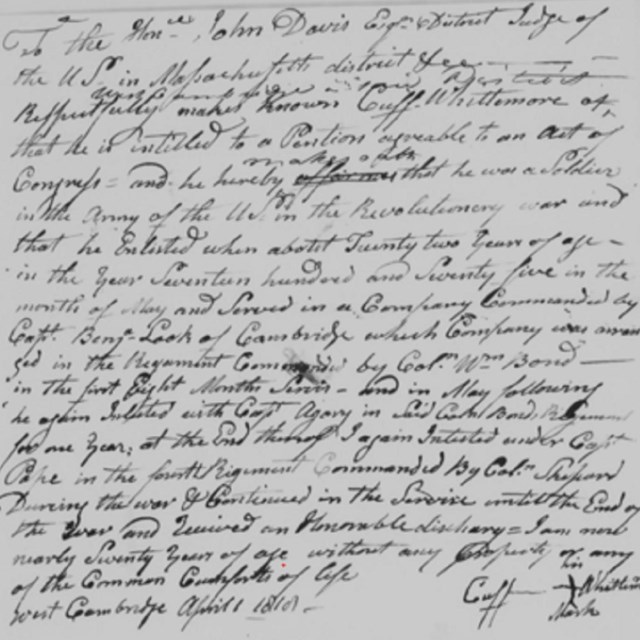 To the Hon.ble John Davis Esqr & District Judge of
the U.S. in Massachusetts district &c
Respectfully makes Known Cuff Whittemore of
that he is intitled to a Pention agreable to an act of
make oath
Congress = and he hereby that he was a Soldier
in the Army of the U.S. in the Revolutionery war and
that he Enlisted when about Twenty two Years of age -
in the Year Seventeen hundred and Seventy five in the
month of May and Served in a Company Commanded by
Capt. Benj.n Lock of Cambridge which Company was arran
ged in the Regament Commanded by Col.n Wm Bond
in the first Eight Months Servis - and in May following
he again Inlisted with Capt in Said Coln Bond Regiment
for one Year; at the End thereof I again Inlisted under Capt
Pope in the fourth Rigement Commanded By Col.n Shepard
Dureing the war & Continued in the Servise untill the End of
the War and Received an Honorable discharg = I am now
nearly Seventy Years of age without any Property or any
of the Common Comforts of life
his
Cuff Whittemore
Mark
West Cambridge April 1 1818 -